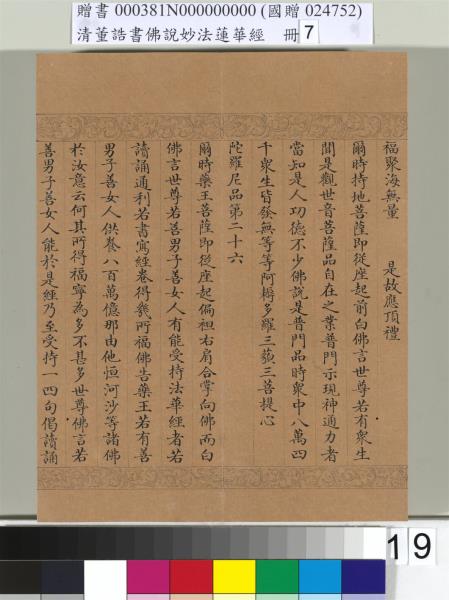 贈書 000381N000000000 (國贈 024752)
清董誥書佛說妙法蓮華經 冊 7
福聚海無量 是故應頂禮
爾時持地菩薩即從座起前白佛言世尊若有衆生
聞是觀世音菩薩品自在之業普門示現神通力者
當知是人功德不少佛說是普門品時衆中八萬四
千衆生皆發無等等阿耨多羅三藐三菩提心
陀羅尼品第二十六
爾時藥王菩薩即從座起偏袒右肩合掌向佛而白
佛言世尊若善男子善女人有能受持法華經者若
讀誦通利若書寫經卷得幾所福佛告藥王若有善
男子善女人供養八百萬億那由他恒河沙等諸佛
於汝意云何其所得福寧為多不甚多世尊佛言若
善男子善女人能於是經乃至受持一四句偈讀誦
19